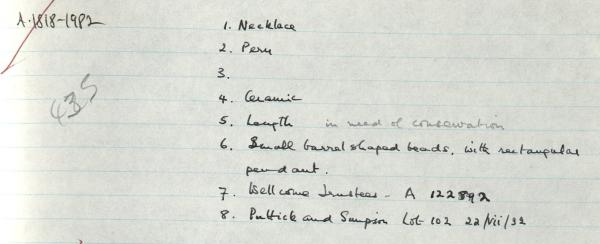 A.1818-1982
1. Necklace
2. Peru
3.
435
4. Ceramic
5. Length in need of conservation
6. Small barrel shaped beads, with rectangular
pendant.
7. Wellcome Trustees - A 122892
8. Puttick and Simpson Lot 102 22/vii/32